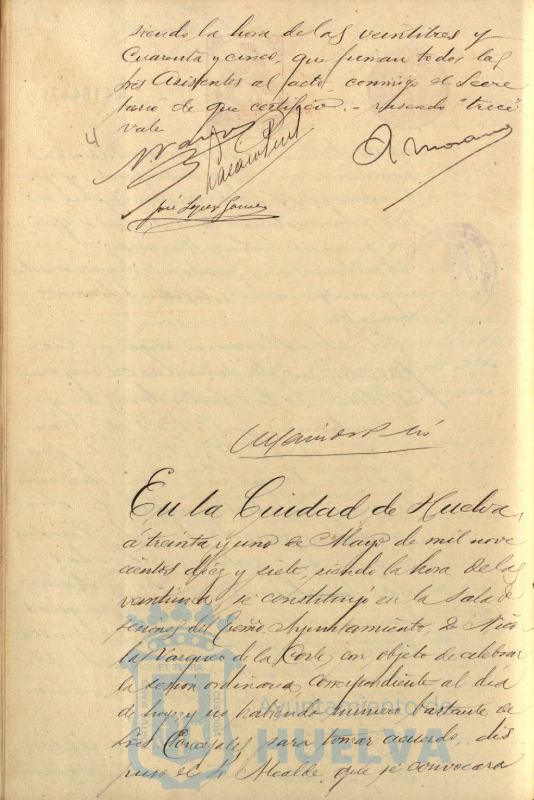 siendo la hora de las veintitres y
Cuarenta y cinco, que firman todos los
Sres Asistentes al acto, conmigo el Secre
tario de que certifico. = raspado "trece"
vale
4
José López Gómez
A Moreno
En la Ciudad de Huelva,
á treinta y uno de Mayo de mil nove
cientos diez y siete, siendo la hora de las
veintiuna se constituyó en la Sala de
sesiones del Excmo Ayuntamiento, D Nico
lás Vazquez de la Corte, con objeto de celebrar
la sesion ordinaria, correspondiente al día
de hoy; y no habiendo número bastante de
Sres Concejales para tomar acuerdo, dis
puso el Sr Alcalde, que se convocara
Ayuntamiento de
HUELVA